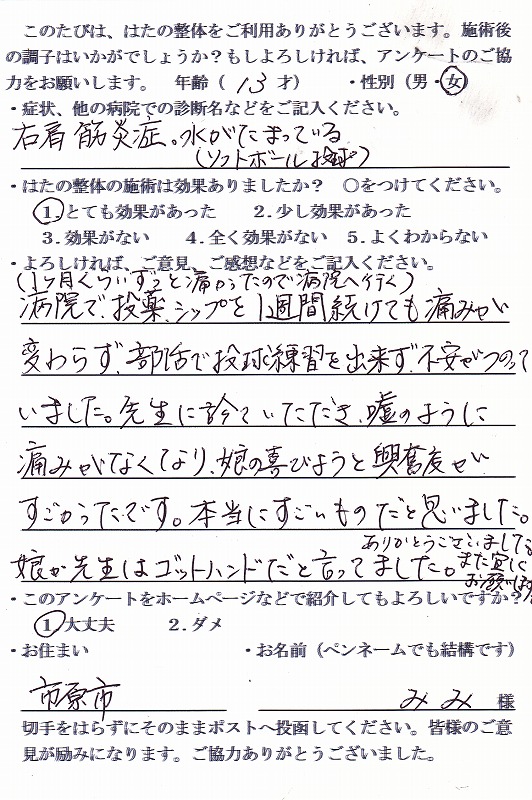 このたびは、はたの整体をご利用ありがとうございます。施術後
の調子はいかがでしょうか?もしよろしければ、アンケートのご協
力をお願いします。 年齢( 13 才) ・性別(男・女)
・症状、他の病院での診断名などをご記入ください。
右肩 筋炎症。水がたまっている
(ソフトボール投球)
・はたの整体の施術は効果ありましたか? ○をつけてください。
1.とても効果があった 2.少し効果があった
3.効果がない 4.全く効果がない 5.よくわからない
・よろしければ、ご意見、ご感想などをご記入ください。
(1ヶ月くらいずっと痛かったので病院へ行く)
病院で、投薬、シップを1週間続けても痛みが
変わらず、部活で投球練習を出来ず、不安がつのって
いました。先生に診ていただき、嘘のように
痛みがなくなり、娘の喜びようと興奮度が
すごかったです。本当にすごいものだと思いました。
娘が先生はゴットハンドだと言ってました。
ありがとうございました。
また宜しく
お願いします
・このアンケートをホームページなどで紹介してもよろしいですか?
1.大丈夫 2.ダメ
・お住まい ・お名前(ペンネームでも結構です)
市原市 みみ 様
切手をはらずにそのままポストへ投函してください。皆様のご意
見が励みになります。ご協力ありがとうございました。